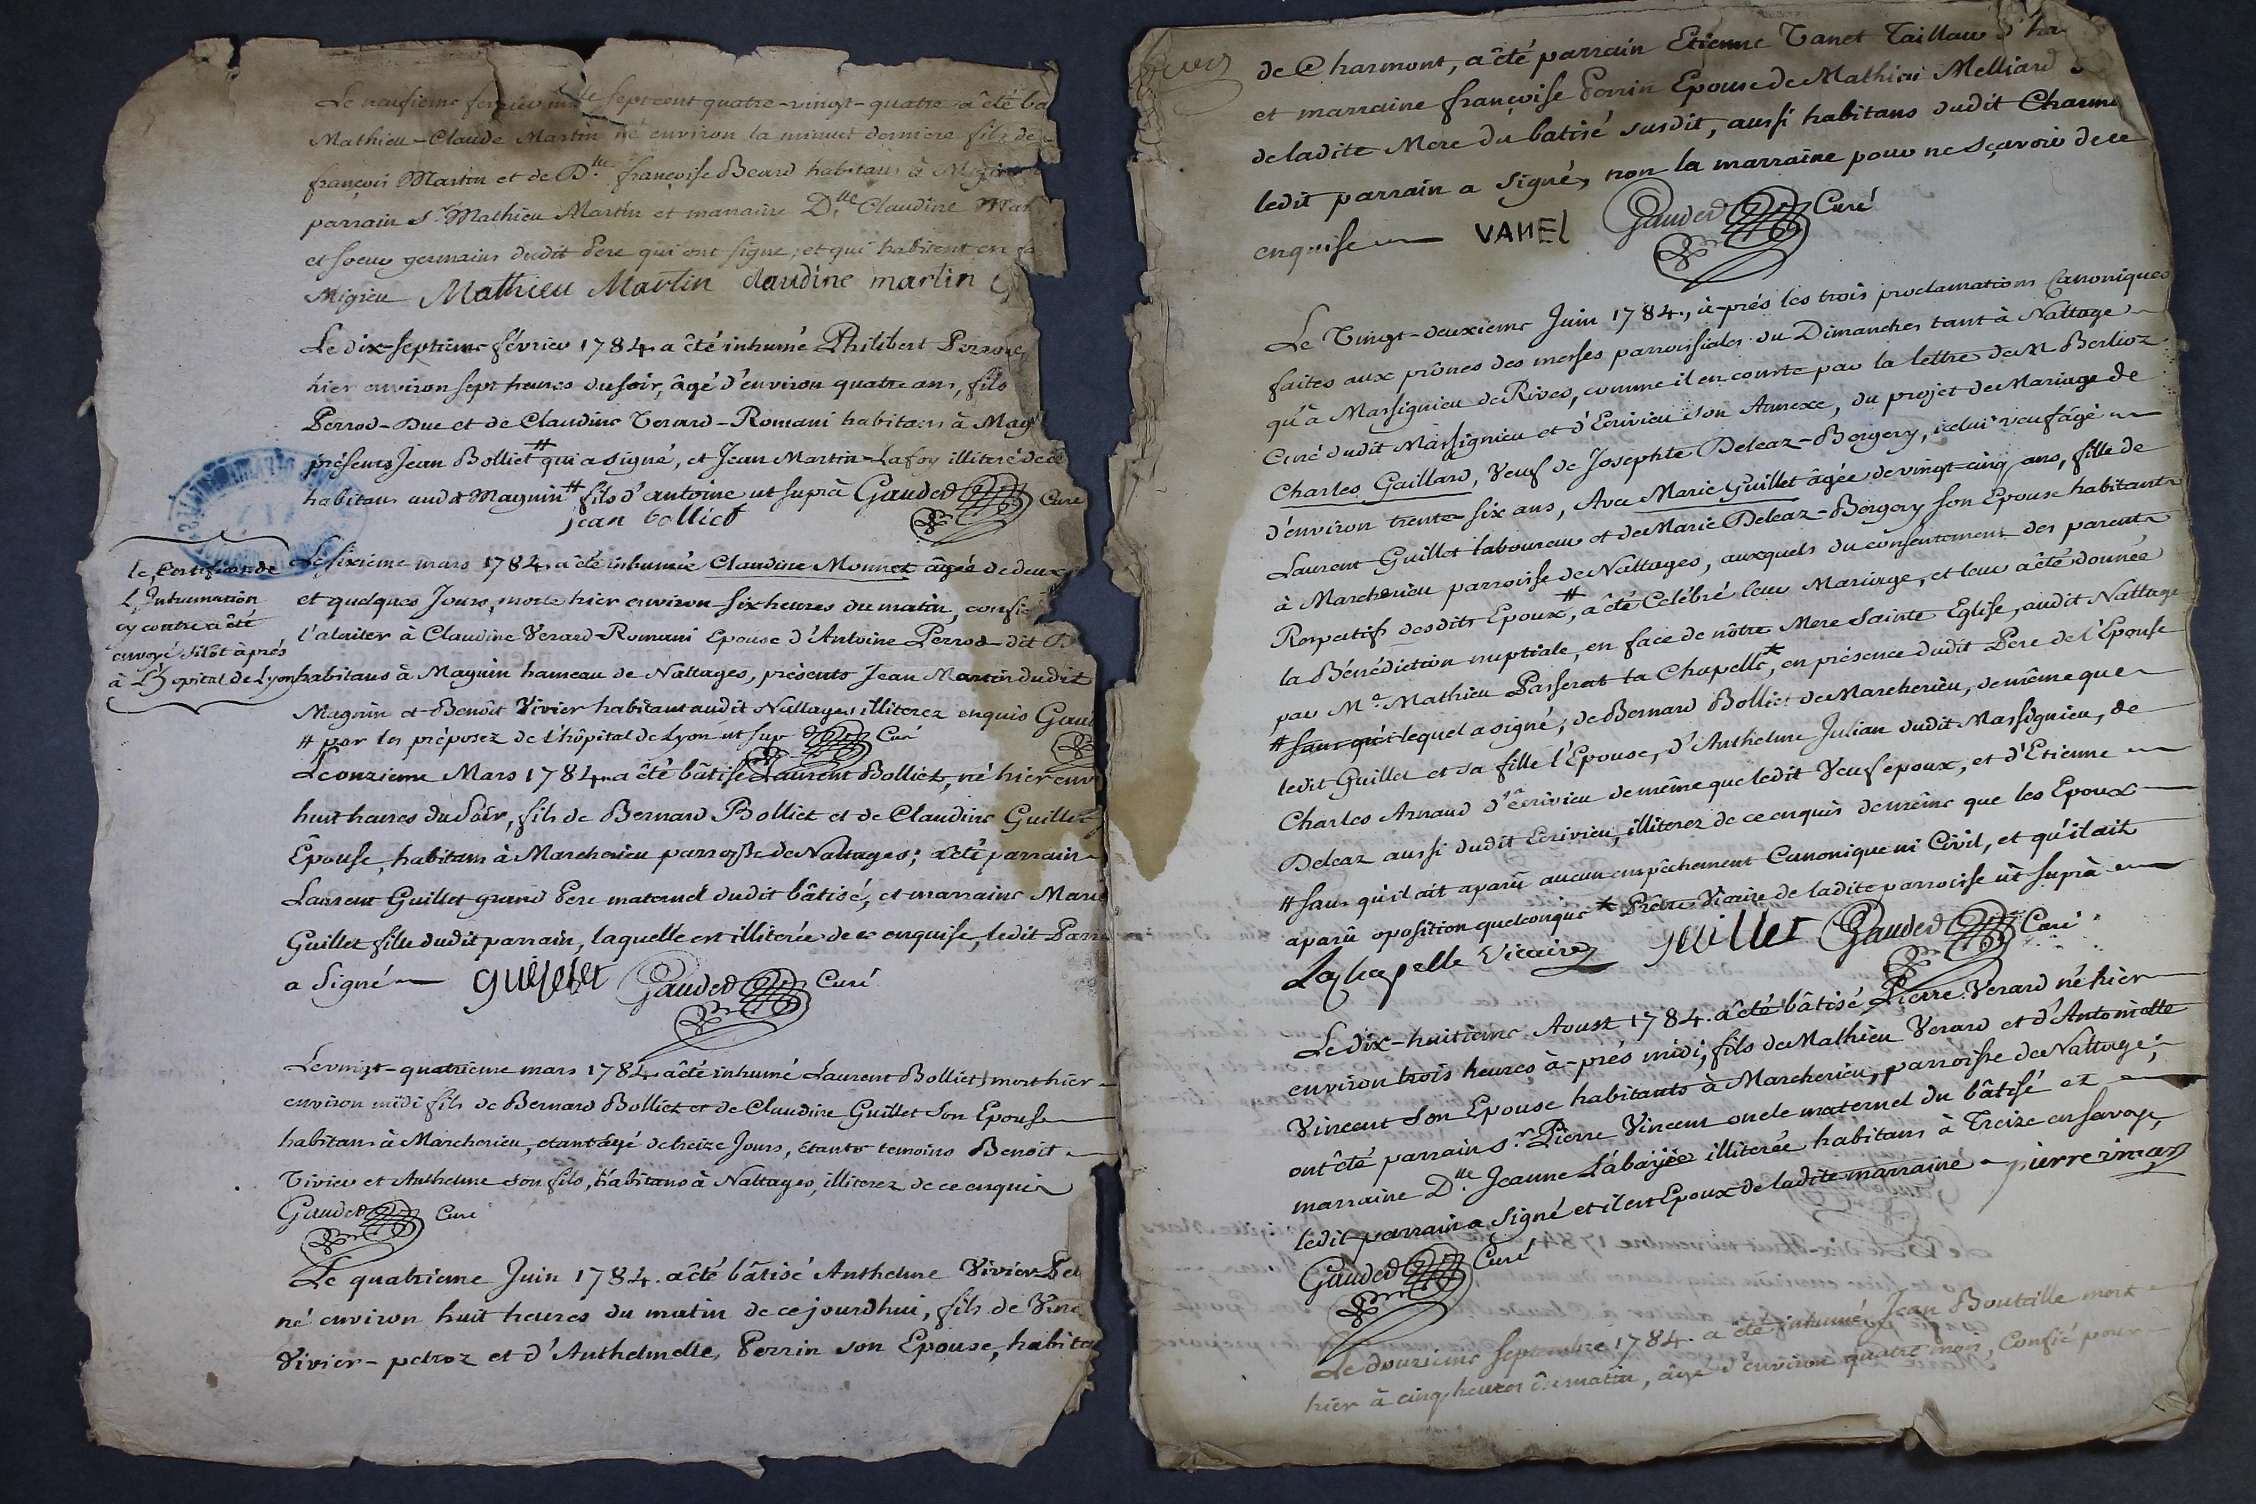 Le neufieme fevrier mil sept cent quatre-vingt-quatre a êté ba
Mathieu-Claude Martin né environ la minuit derniere fils de
françois Martin et de D.lle françoise Beard habitans à Migieu
parrain s.r Mathieu Martin et marraine D.lle Claudine Mar
et soeur germains dudit Pere qui ont signé, et qui habitent en
Migieu Mathieu Martin claudine martin
Le dix-septieme février 1784 a êté inhumé Philibert Perrod
hier environ sept heures du soir, âgé d'environ quatre ans, fils
Perrod-Duc et de Claudine Verard-Romani habitans à Mag
présents Jean Bolliet # qui a signé, et Jean Martin-Lafoy illiteré de ce
habitans audit Magnin # fils d'antoine ut suprà Gauded Curé
jean bolliet
le Certificat de
L'Inhumation
cy contre a êté
envoyé sitôt àprès
à L'hopital de Lyon
Le sixieme mars 1784 a êté inhumée Claudine Monnet âgée de deux
et quelques Jours, morte hier environ six heures du matin, confié
l'alaiter à Claudine Verard-Romani Epouse d'Antoine Perrod-dit D
habitans à Magnin hameau de Nattages, présents Jean Martin dudit
Magnin et Benoît Vivier habitant audit Nattages illiterez enquis Gaud
# par les préposez de l'hôpital de Lyon ut sup Curé
Le onzieme Mars 1784 a êté bâtisé Laurent Bolliet, né hier envi
huit heures du Soir, fils de Bernard Bolliet et de Claudine Guillet
Epouse, habitans à Marcherieu parroisse de Nattages; a êté parrain
Laurent Guillet grand Pere maternel dudit bâtisé, et marraine Marie
Guillet fille dudit parrain, laquelle est illiterée de ce enquise, ledit Parra
a Signé Gauded Curé
Le vingt-quatrieme mars 1784 a êté inhumé Laurent Bolliet mort hier
environ midi fils de Bernard Bolliet et de Claudine Guillet Son Epouse
habitans à Marcherieu, étant âgé de treize Jours, Etants temoins Benoit
Vivier et Anthelme son fils, habitans à Nattages, illiterez de ce enquis
Gauded Curé
Le quatrieme Juin 1784. a êté bâtisé Anthelme Vivier-Pet
né environ huit heures du matin de ce jourdhui, fils de Vinc
Vivier-petroz et d'Anthelmette Perrin son Epouse, habita
de Charmont, a êté parrain Etienne Vanet Tailleur
et marraine françoise Perrin Epouse de Mathieu Melliard
de ladite Mere du batisé susdit, aussi habitans dudit Charm
ledit parrain a signé, non la marraine pour ne sçavoir de ce
enquise VANEL Gauded Curé
Le Vingt-deuxieme Juin 1784., à-près les trois proclamations Canoniques
faites aux prônes des messes parroissiales du Dimanches tant à Nattage
qu'à Massignieu de Rives, comme il en conste par la lettre de M Berlioz
Curé dudit Massignieu et d'Ecrivieu son Annexe, du projet de Mariage de
Charles Gaillard, Veuf de Josephte Deleaz-Bergery, icelui veuf âgé
d'environ trente six ans, Avec Marie Guillet âgée de vingt-cinq ans, fille de
Laurent Guillet laboureur et de Marie Deleaz-Bergery son Epouse habitants
à Marcherieu parroisse de Nattages, auxquels du consentement des parents
Respectifs desdits Epoux, # a êté Celébré leur Mariage, et leur a êté donnée
la Bénédiction nuptiale, en face de nôtre Mere Sainte Eglise, audit Nattage
par M.e Mathieu Passerat la Chapelle *, en présence dudit Pere de l'Epouse
# sans qu'i lequel a signé; de Bernard Bolliet de Marcherieu, de même que
ledit Guillet et sa fille l'Epouse, d'Anthelme Julian dudit Massignieu, de
Charles Arnaud d'êcrivieu de même que ledit Veuf epoux, et d'Etienne
Deleaz aussi dudit Ecrivieu, illiterez de ce enquis de même que les Epoux
# sans qu'il ait aparû aucun empêchement Canonique ni Civil, et qu'il ait
aparû oposition quelconque * Prêtre Vicaire de ladite parroisse ut suprà
Lachapelle Vicaire guillet Gauded Curé
Le dix-huitieme Aoust 1784. a êté bâtisé Pierre Verard né hier
environ trois heures à-près midi, fils de Mathieu Verard et d'Antoinette
Vincent Son Epouse habitants à Marcherieu, parroisse de Nattage;
ont êté parrain s.r Pierre Vincent oncle maternel du bâtisé et
marraine D.lle Jeanne Labayée illiterée habitans à Treize en Savoye,
ledit parrain a Signé et il est Epoux de ladite marraine
Gauded Curé
Le douzieme septembre 1784. a êté inhumé Jean Bouteille mort
hier à cinq heures du matin, âgé d'environ quatre mois, Confié pour